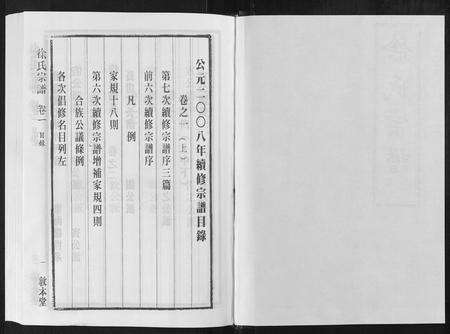 公元二〇〇八年續修宗譜目錄
卷之一（上）
第七次續修宗譜序三篇
前六次續修宗譜序
凡例
家規十八則
第六次續修宗譜增補家規四則
合族公議條例
各次倡修名目列左
徐氏宗譜 卷一 目錄
一 敦本堂